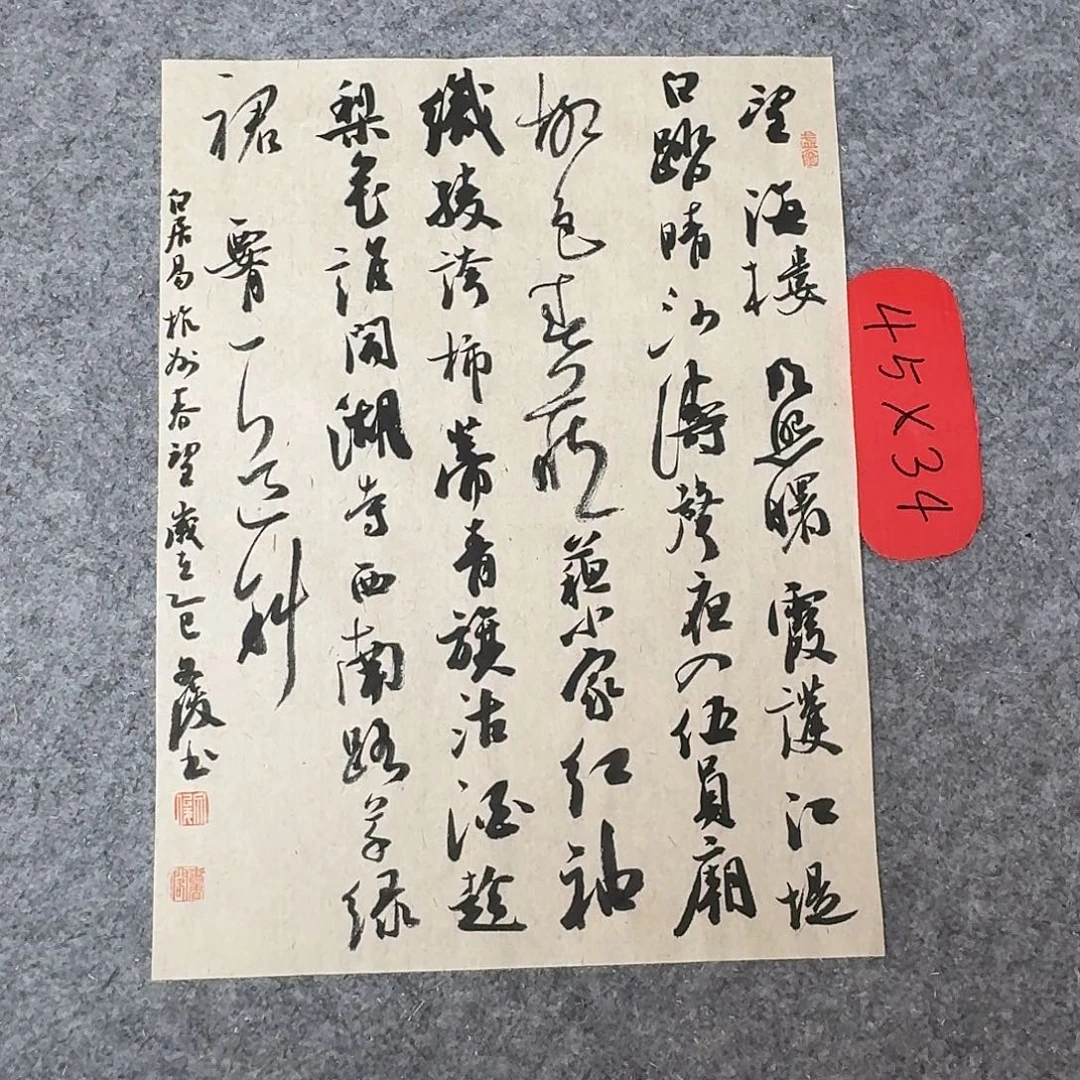 望海樓明照曙霞護江堤
白踏晴沙濤聲夜入伍員廟
柳色春藏蘇小家紅袖
織綾誇柿蒂青旗沽酒趁
梨花誰開湖寺西南路草綠
裙腰一道斜
白居易杭州春望歲在乙巳書
45×34